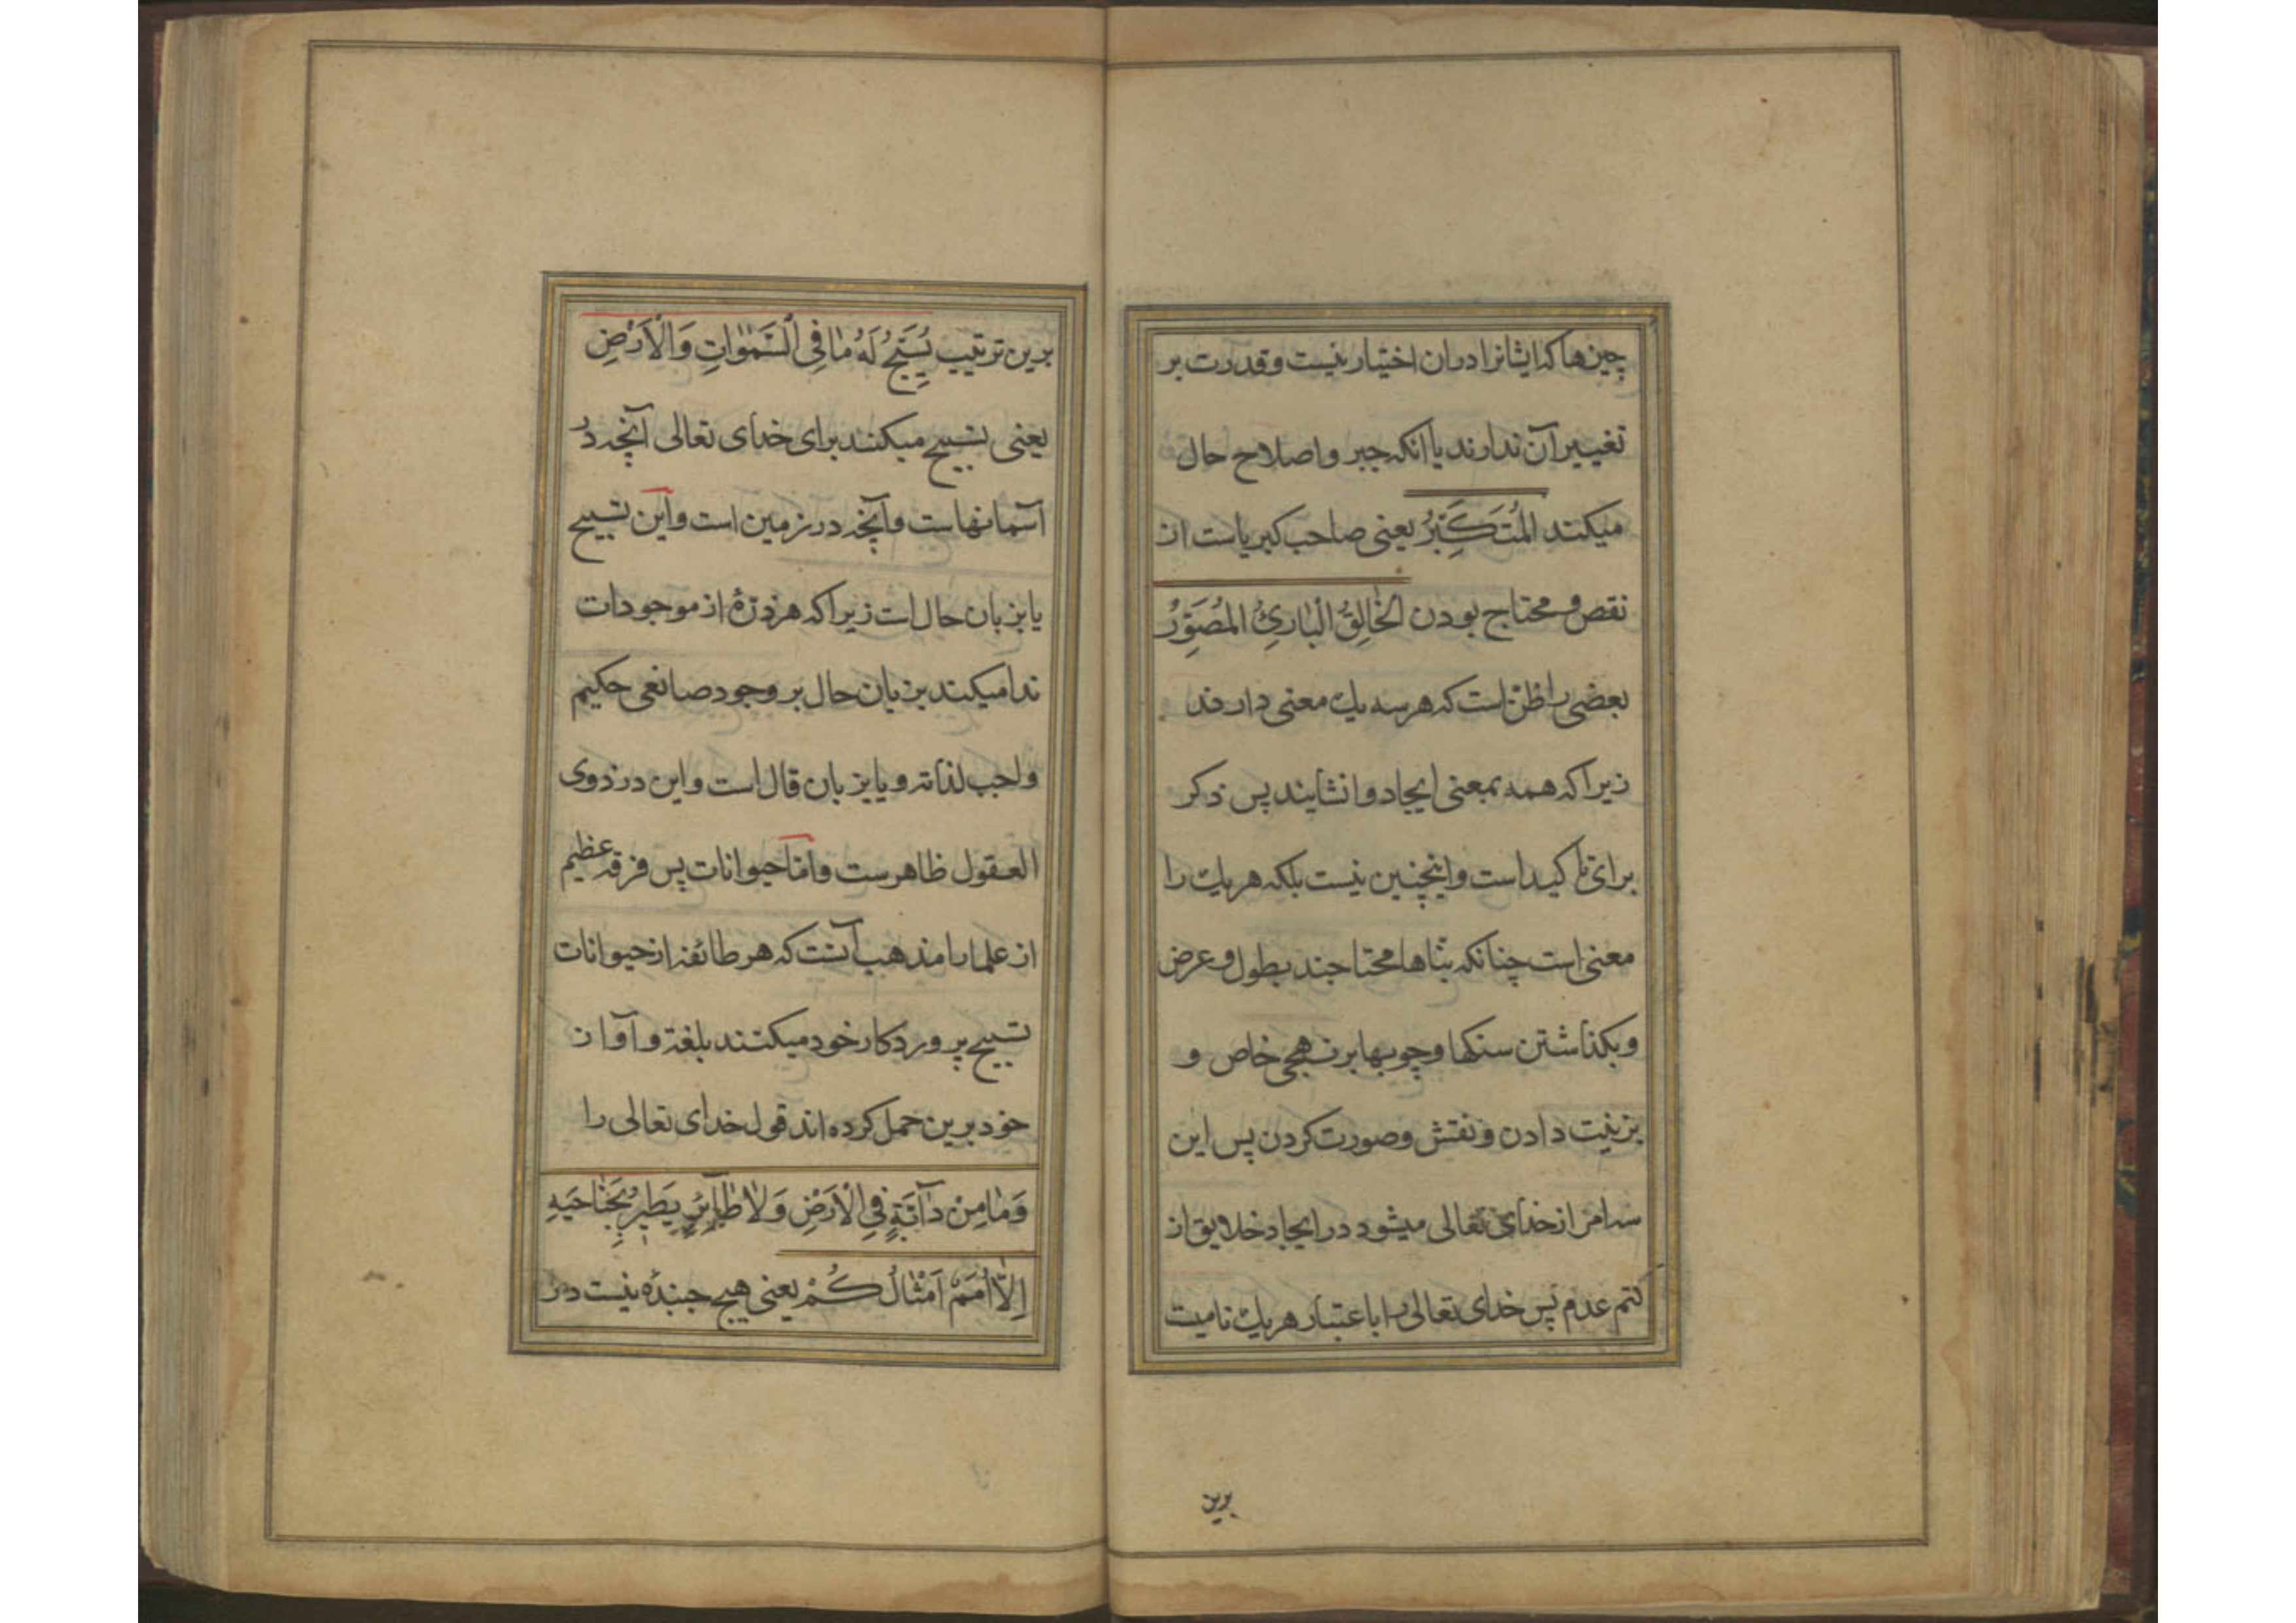 چیزها که ایشانرا دران اختیار نیست و قدرت بر
تغییر آن ندارند یا آنکه جبر و اصلاح حال
میکند اَلْمُتَكَبِّرُ یعنی صاحب کبریاست از
نقص و محتاج بودن اَلْخٰالِقُ الْبٰارِئُ الْمُصَوِّرُ
بعضی را ظن است که هر سه یك معنی دارند
زیرا که همه بمعنی ایجاد و انشایند پس ذکر
برای تأکید است و اینچنین نیست بلکه هر یك را
معنی است چنانکه بناها محتاجند بطول و عرض
و بکذاشتن سنکها و چوبها بر نهجی خاص و
بزینت دادن و نقش و صورت کردن پس این
سه امر از خدای تعالی میشود در ایجاد خلایق از
کتم عدم پس خدای تعالی را باعتبار هر یك نامیست
برین
برین ترتیب یُسَبِّحُ لَهُ مٰا فِی السَّمٰوٰاتِ وَالْاَرْضِ
یعنی تسبیح میکنند برای خدای تعالی آنچه در
آسمانهاست و آنچه در زمین است و این تسبیح
یا بزبان حال است زیرا که هر ذرّهٔ از موجودات
ندا میکند بزبان حال بر وجود صانعی حکیم
واجب لذاته و یا بزبان قال است و این در ذوی
العقول ظاهرست و امّا حیوانات پس فرقه عظیم
از علما را مذهب آنست که هر طائفه از حیوانات
تسبیح پروردکار خود میکنند بلغة و آواز
خود برین حمل کرده اند قول خدای تعالی را
وَمٰا مِنْ دٰآبَّةٍ فِی الْاَرْضِ وَلٰا طٰآئِرٍ یَطِیرُ بِجَنٰاحَیْهِ
اِلّٰا اُمَمٌ اَمْثٰالُكُمْ یعنی هیچ جنبندهٔ نیست در